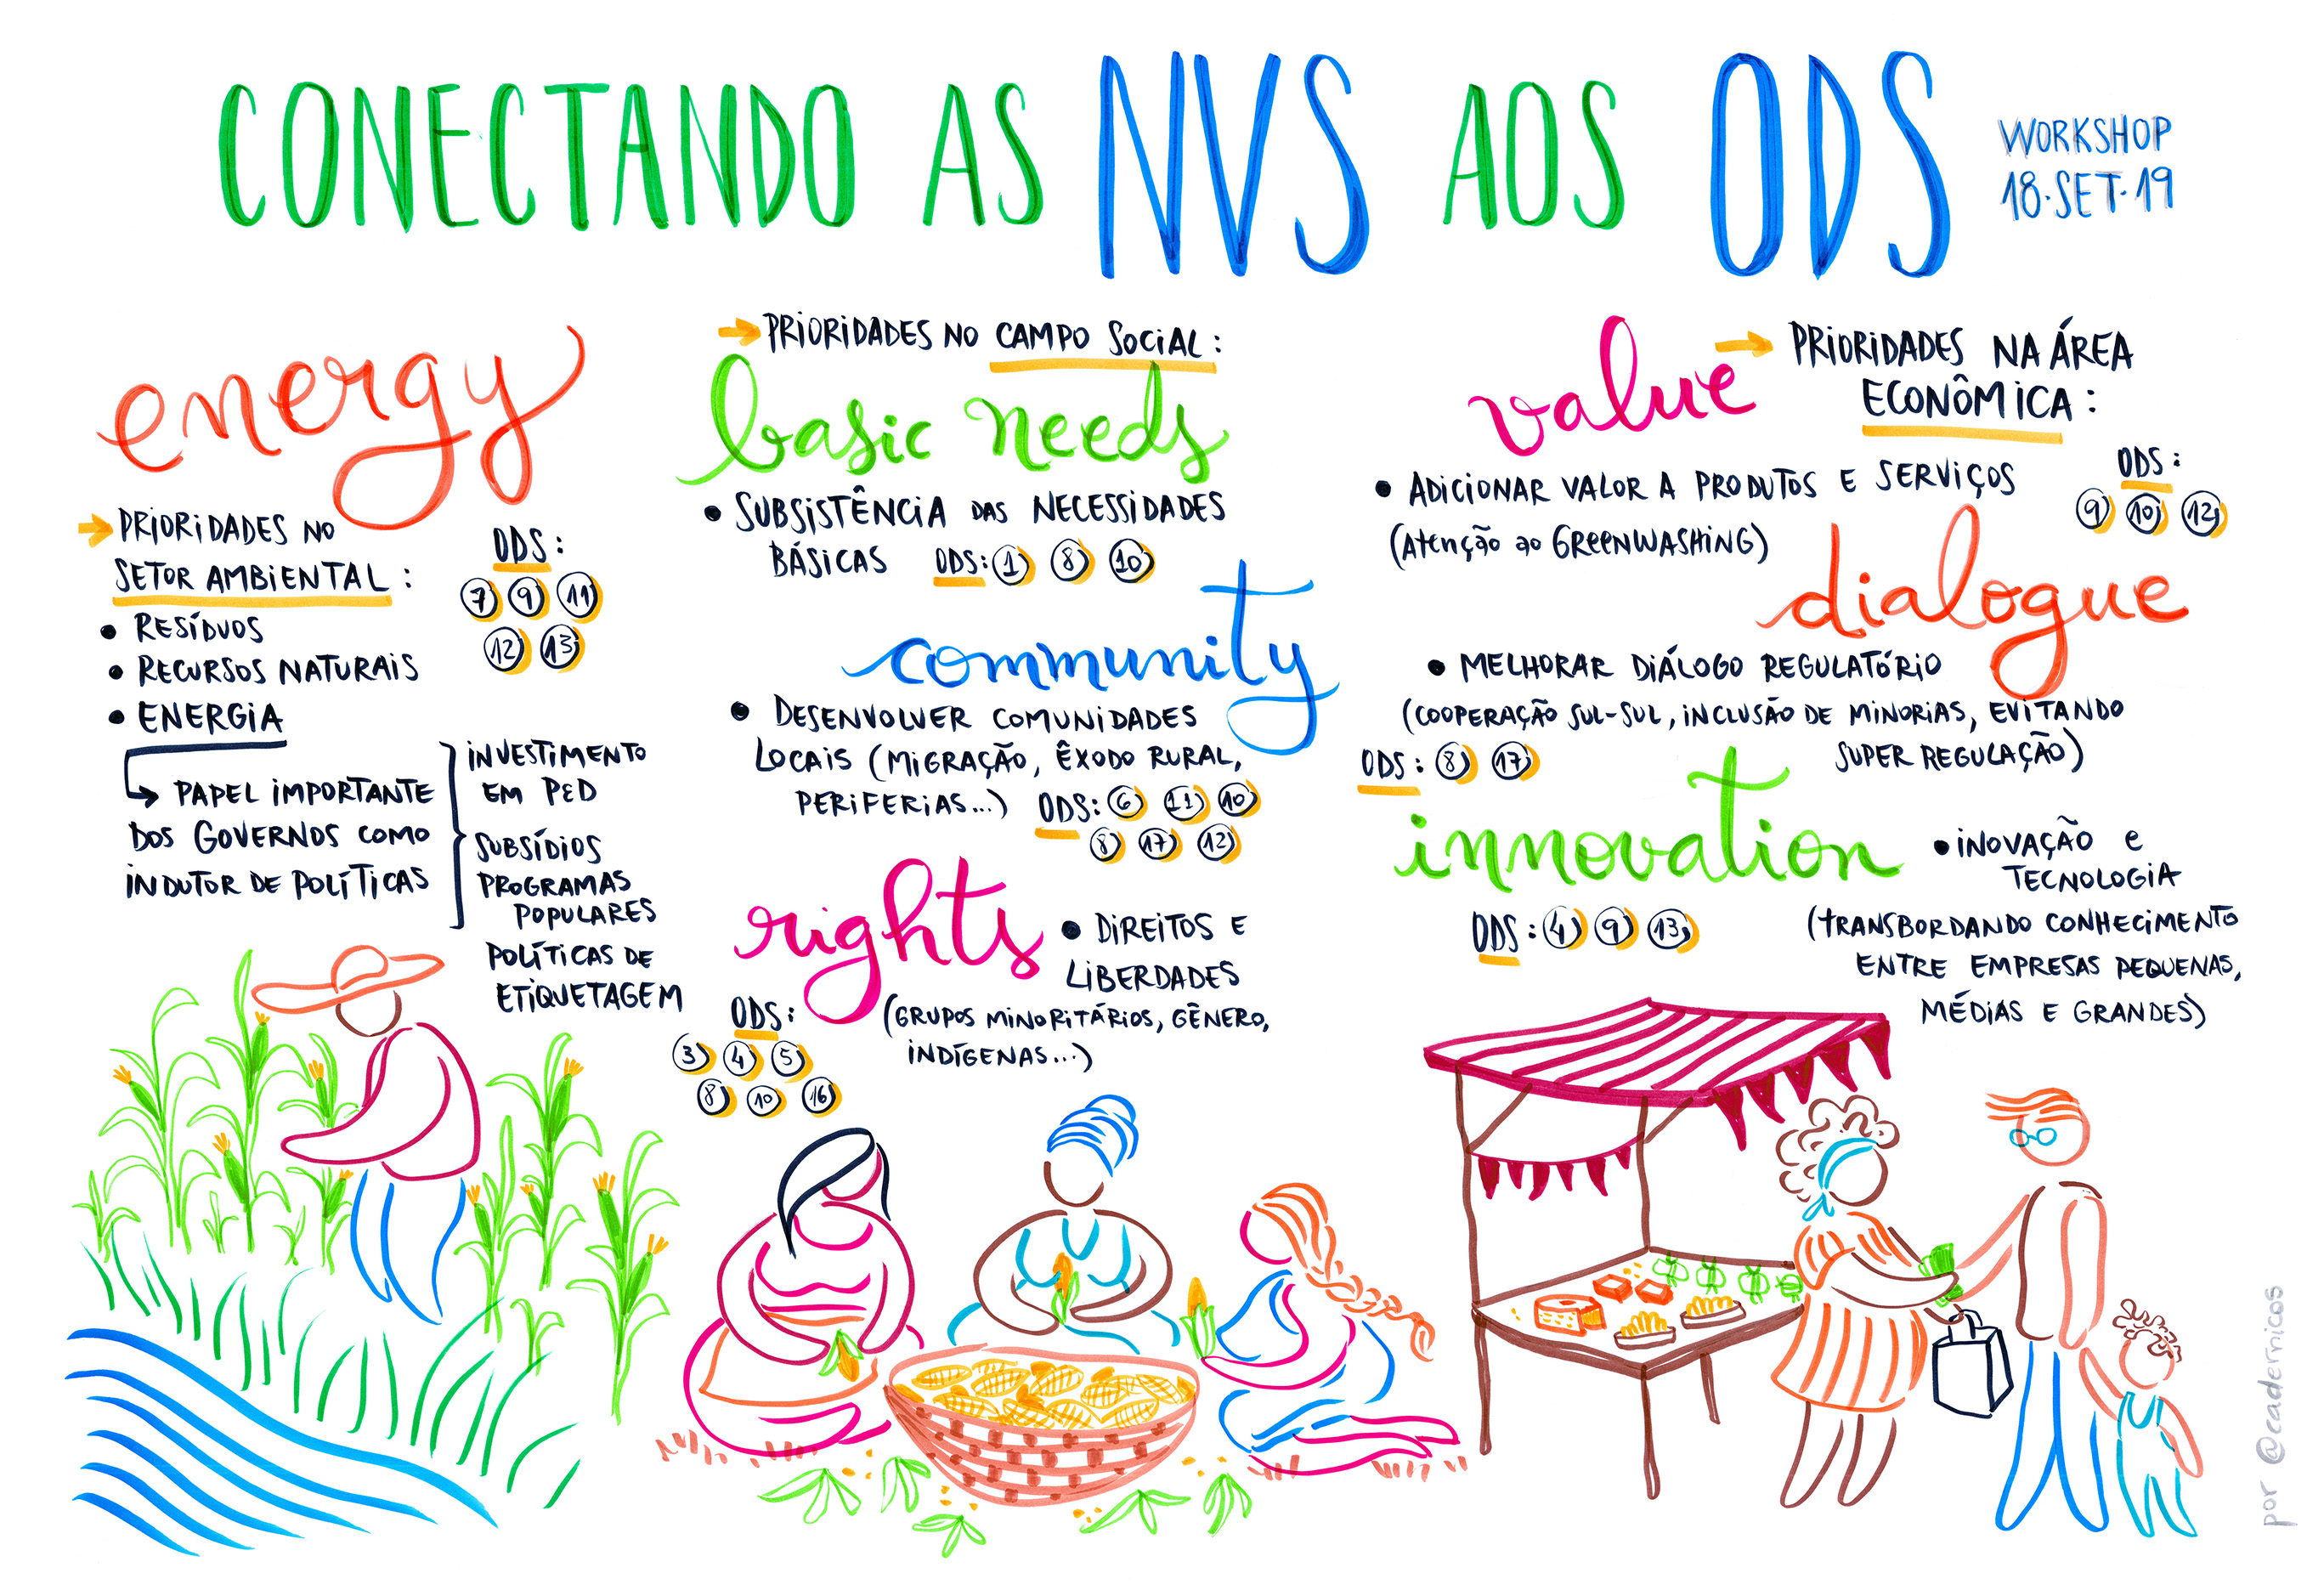 CONECTANDO AS NVS AOS ODS
WORKSHOP
18·SET·19
energy
→ PRIORIDADES NO
SETOR AMBIENTAL:
• RESÍDUOS
• RECURSOS NATURAIS
• ENERGIA
ODS:
7 9 11
12 13
PAPEL IMPORTANTE
DOS GOVERNOS COMO
INDUTOR DE POLÍTICAS
INVESTIMENTO
EM P&D
SUBSÍDIOS
PROGRAMAS
POPULARES
POLÍTICAS DE
ETIQUETAGEM
→ PRIORIDADES NO CAMPO SOCIAL:
basic needs
• SUBSISTÊNCIA DAS NECESSIDADES
BÁSICAS ODS: 1 8 10
community
• DESENVOLVER COMUNIDADES
LOCAIS (MIGRAÇÃO, ÊXODO RURAL,
PERIFERIAS...) ODS: 6 11 10
8 17 12
rights
• DIREITOS E
LIBERDADES
(GRUPOS MINORITÁRIOS, GÊNERO,
INDÍGENAS...)
ODS:
3 4 5
8 10 16
value
→ PRIORIDADES NA ÁREA
ECONÔMICA:
• ADICIONAR VALOR A PRODUTOS E SERVIÇOS
(Atenção ao GREENWASHING)
ODS:
9 10 12
dialogue
• MELHORAR DIÁLOGO REGULATÓRIO
(COOPERAÇÃO SUL-SUL, INCLUSÃO DE MINORIAS, EVITANDO
SUPER REGULAÇÃO)
ODS: 8 17
innovation
• INOVAÇÃO e
TECNOLOGIA
(TRANSBORDANDO CONHECIMENTO
ENTRE EMPRESAS PEQUENAS,
MÉDIAS E GRANDES)
ODS: 4 9 13
por @cadernicos